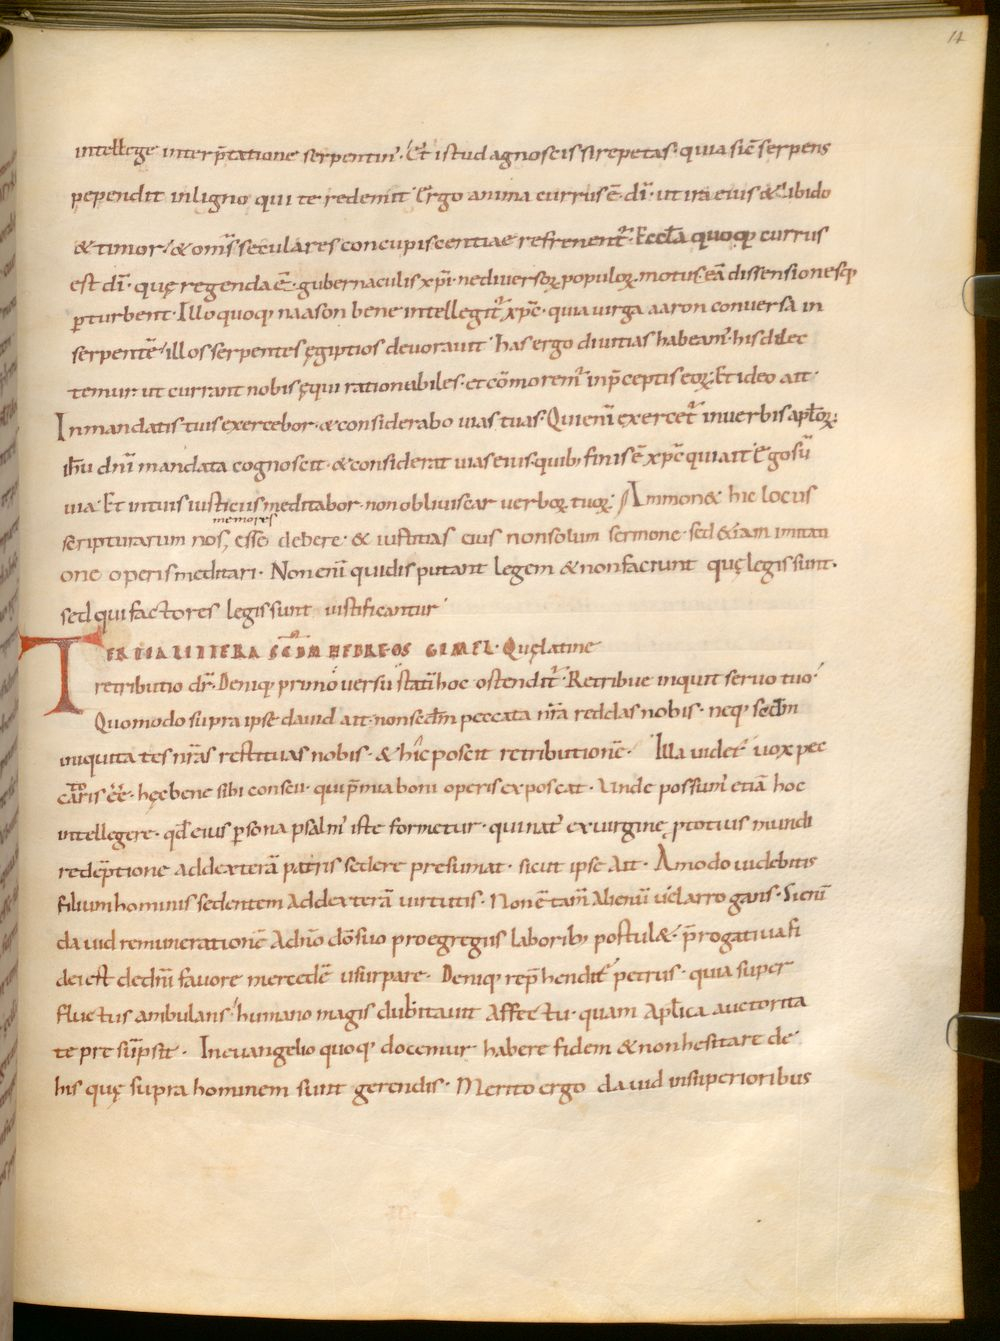 14
intellege interp̄tatione serpentin̄. Et istud agnoscis si repetas. quia sic̄ serpens
pependit in ligno qui te redemit. Ergo anima currus ē. dī. ut ira eius & libido
& timor. & om̄s seculares concupiscentiae refrenent᷑. Eccła quoq; currus
est dī. quę regenda ē. gubernaculis xp̄i. ne diversoꝝ populoꝝ. motus eā dissensionesq;
ꝑturbent. Illo quoq; naason bene intellegit᷑ xp̄c. quia virga aaron conversa in
serpentē illos serpentes ęgiptios devoravit. has ergo divitias habeam̄. his dilec
temur. ut currant nobis ęqui rationabiles. et cōmorem̄ in p̄ceptis eoꝝ. Et ideo ait.
In mandatis tuis exercebor. & considerabo vias tuas. Qui enī exercet᷑ in verbis apłoꝝ.
ih̄u dn̄i mandata cognoscit. & considerat vias eius. quib; finis ē xp̄c qui ait Ego sū
via. Et in tuis iusticiis meditabor. non obliviscar verboꝝ tuoꝝ. Ammon& hic locus
memores
scripturarum nos, esse debere. & iustitias eius non solum sermone. sed &iam imitati
one operis meditari. Non enī qui disputant legem & non faciunt quę legis sunt.
sed qui factores legis sunt iustificantur.
TERTIA LITTERA SCDM HEBREOS GIMEL. Quę latine
retributio dr̄. Deniq; primo versu statī hoc ostendit᷑. Retribue inquit servo tuo.
Quomodo supra ipse david ait. non scd̄m peccata nr̄a reddas nobis. neq; scd̄m
iniquitates nr̄as restituas nobis. & hic poscit retributionē. Illa videt᷑ vox pec
catoris ēē. hęc bene sibi conscii. qui p̄mia boni operis exposcat. Unde possum̄ etiā hoc
intellegere. qđ eius ꝑsona psalm̄ iste formetur. qui nat᷑ ex virgine, ꝓ totius mundi
redēptione ad dexterā patris sedere presumat. sicut ipse ait. Amodo videbitis
filium hominis sedentem ad dexterā virtutis. Non ē tam̄ alienū vel arrogans. Si enī
david remunerationē a dn̄o dō suo pro egregiis laborib; postul&. p̄rogativa fi
dei est de dn̄i favore mercedē usurpare. Deniq; rep̄hendit᷑ petrus. quia super
fluctus ambulans. humano magis dubitavit affectu. quam apłica auctorita
te presūpsit. In evangelio quoq; docemur habere fidem & non hesitare de
his quę supra hominem sunt gerendis. Merito ergo david in superioribus